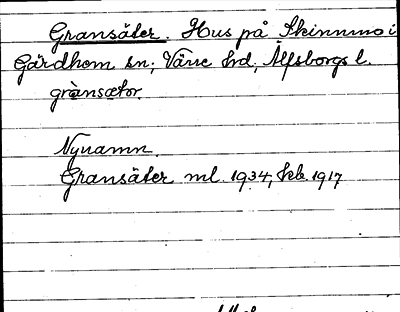 Gransäter. Hus på Skinnmo i
Gärdhem sn; Väne hd, Älfsborgs l.
grànsætor.
Nynamn.
Gransäter ml. 1934, kb 1917